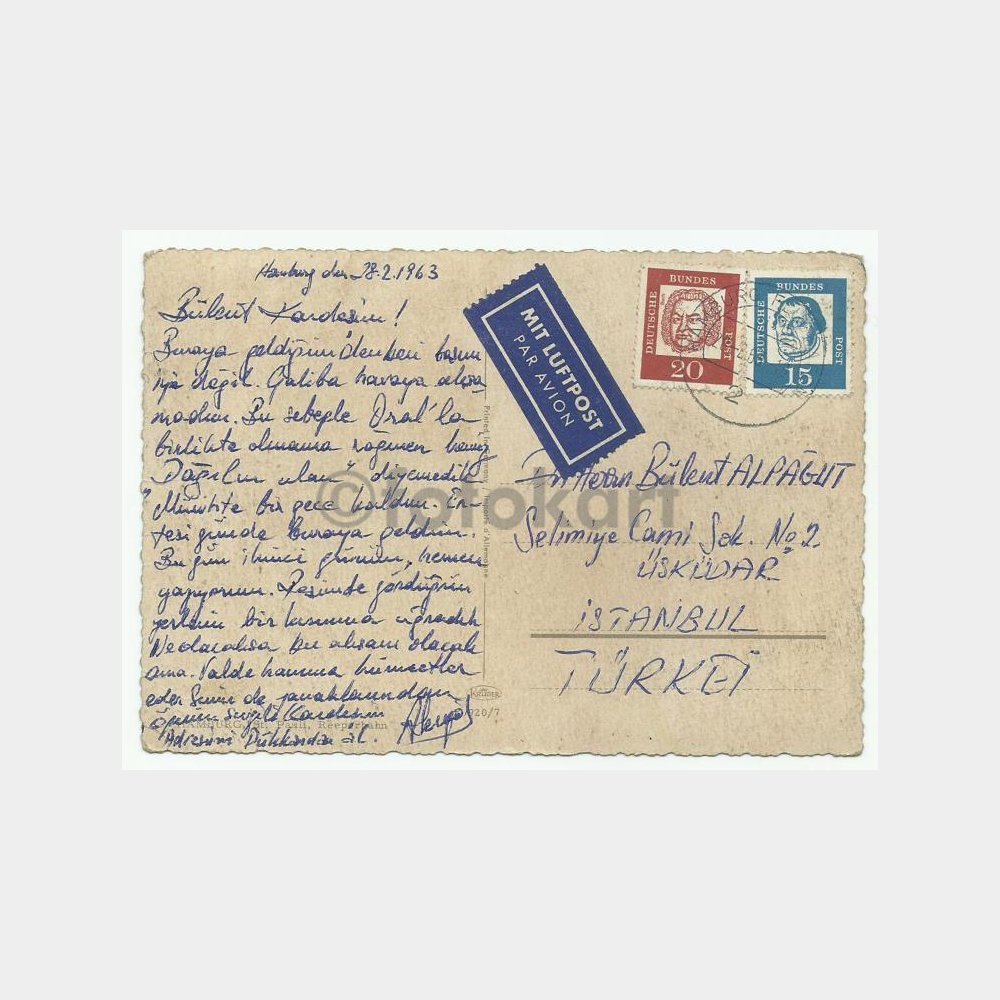 Hamburg den 28.2.1963
Bülent Kardeşim!
Buraya geldiğim'denberi başım
iyi değil. Galiba havaya alışa
madım. Bu sebeple Oral'la
birlikte olmama rağmen henüz
Dağılın ulan" diyemedik
"Münihte bir gece kaldım. Er-
tesi günde buraya geldim.
Bugün ikinci günüm, hemen
yazıyorum. Resimde gördüğün
yerlerin bir kısmına uğradık
Neolacaksa bu akşam olacak
ama. Valde hanıma hürmetler
eder Senin de yanaklarından
öperim sevgili Kardeşim
Adresimi Dükkandan al.
MIT LUFTPOST
PAR AVION
DEUTSCHE BUNDES POST
20
DEUTSCHE BUNDES POST
15
Herrn Bülent ALPAĞUT
Selimiye Cami Sok. No 2.
ÜSKÜDAR
İSTANBUL
TÜRKEI
Printed in Germany / Importé d'Allemagne
KRÜGER
920/7
HAMBURG, St. Pauli, Reeperbahn
© fotokart